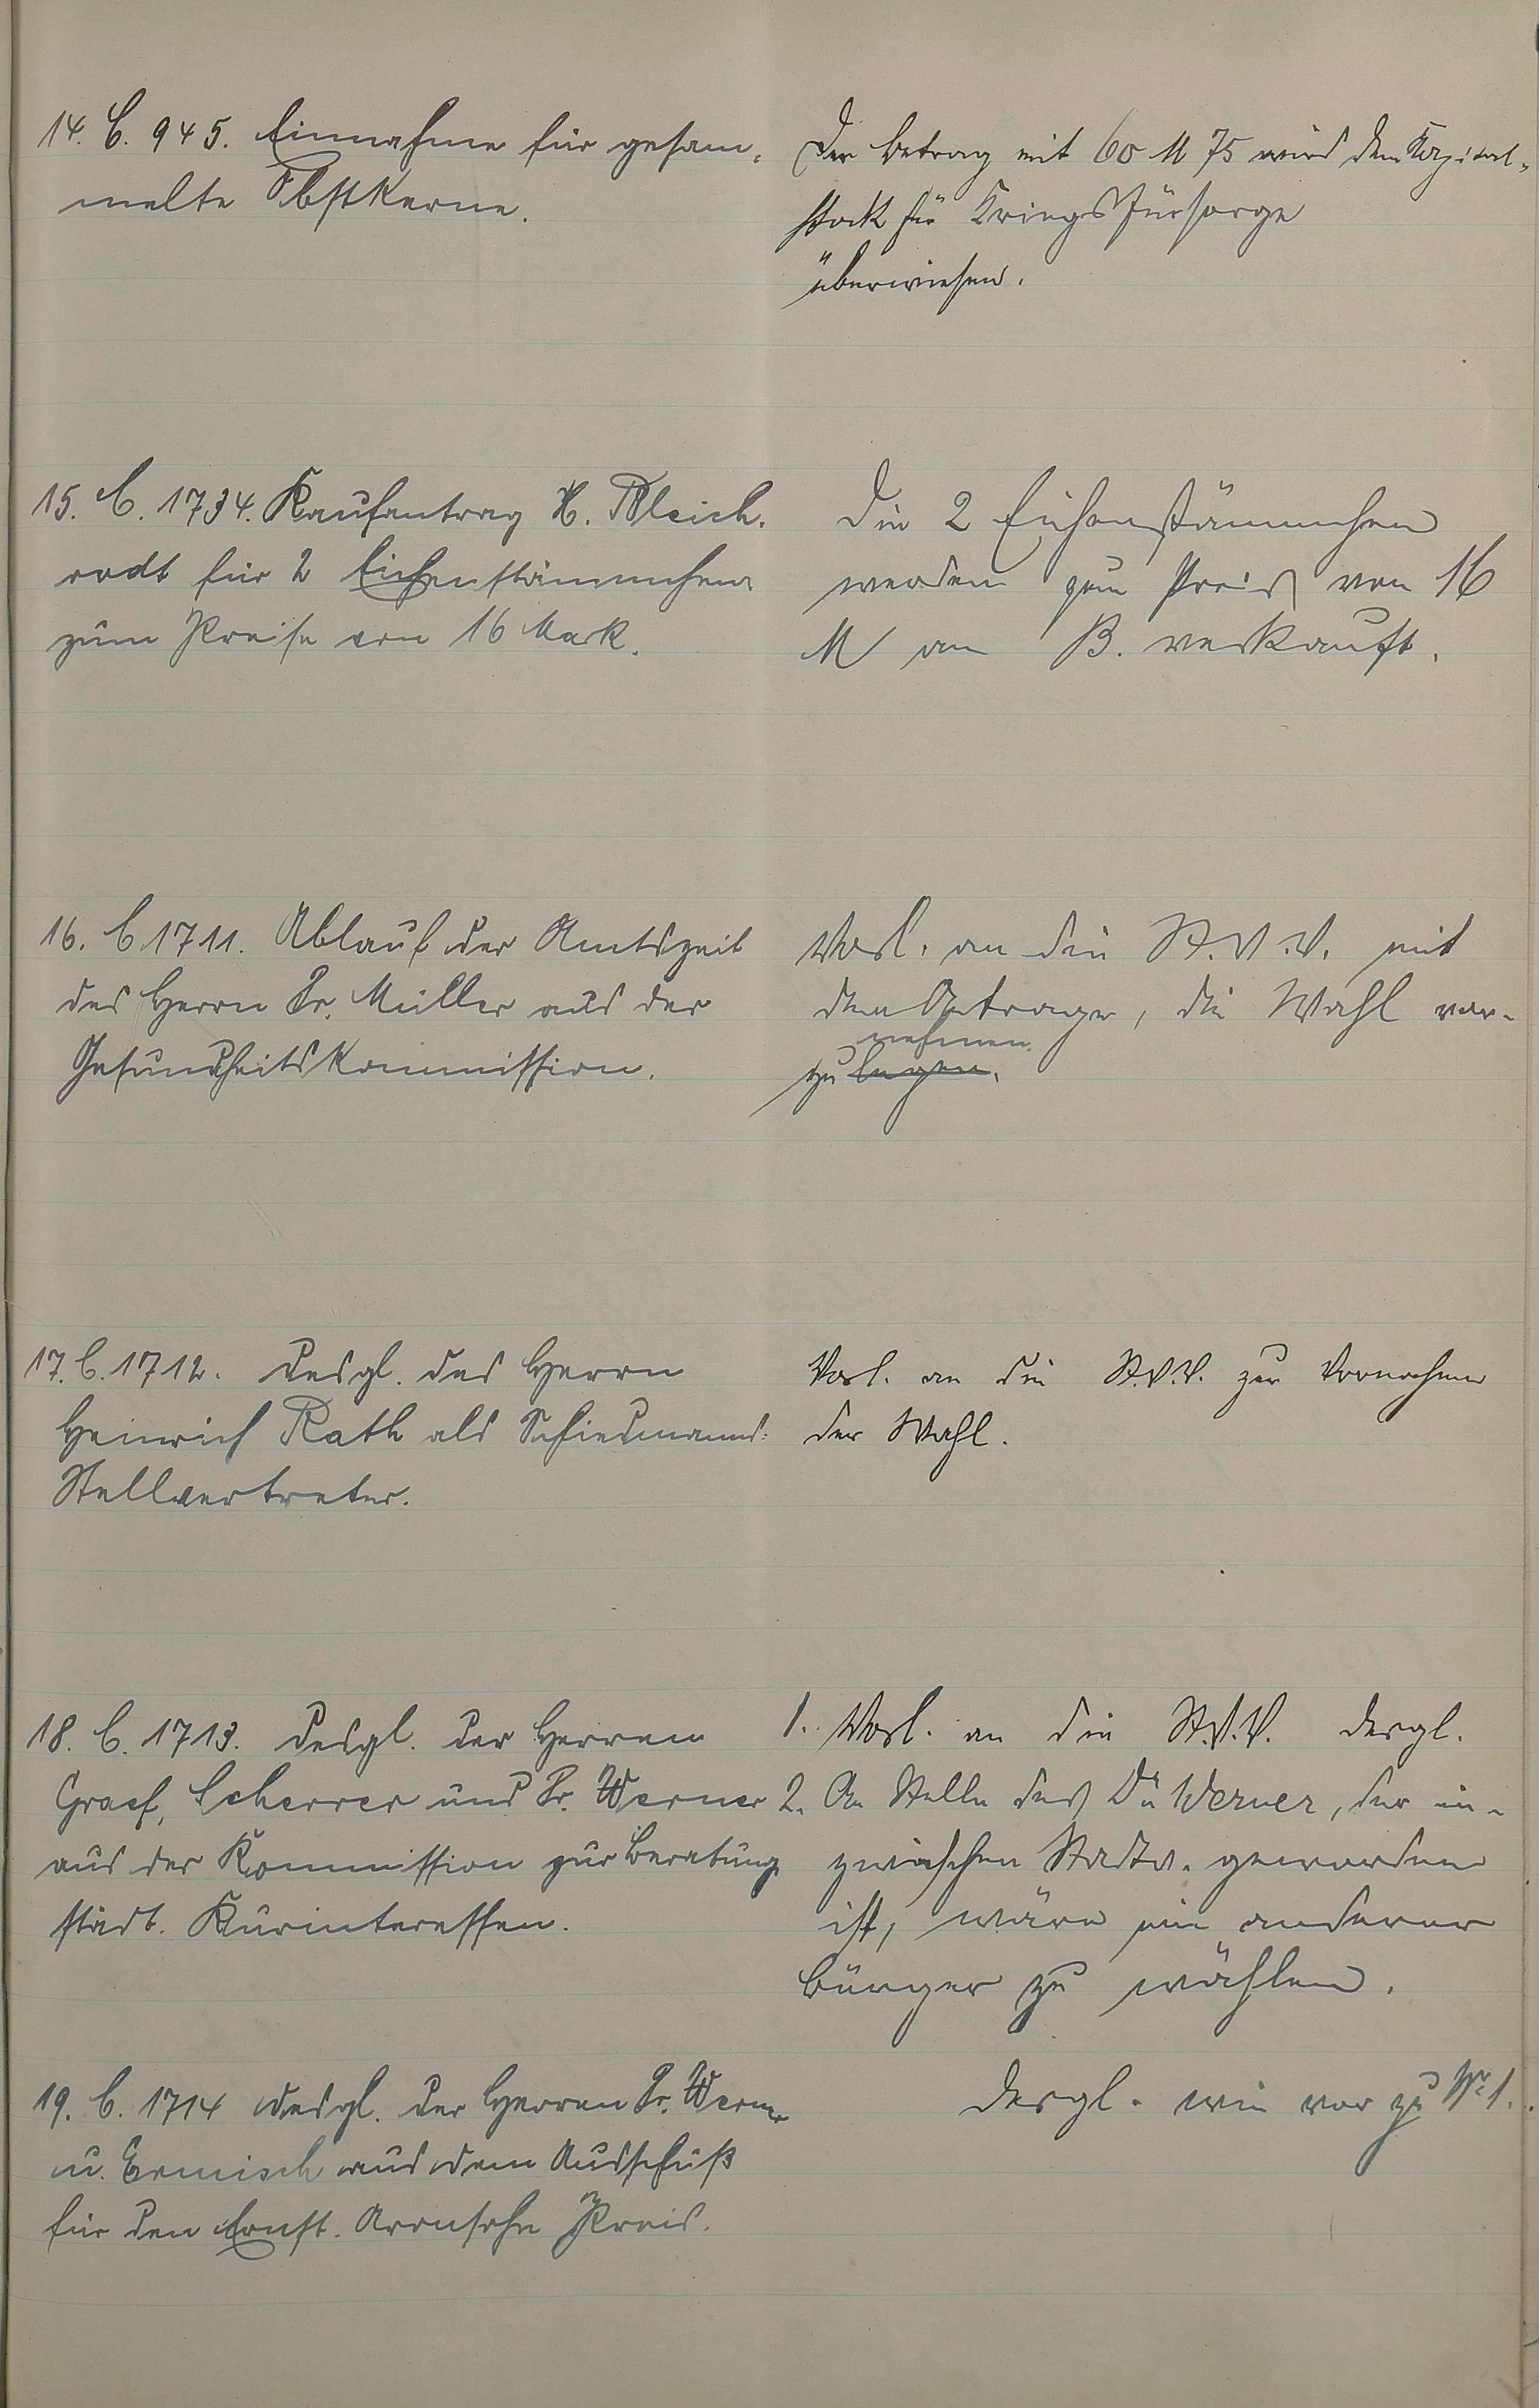 14. C. 945. Einnahme für gesam-
melte Obstkerne.
Der Betrag mit 60 M 75 wird dem Kapital-
stock für Kriegsfürsorge
überwiesen.
15. C. 1734. Kaufantrag H. Bleich-
rodt für 2 Eichenstämmchen
zum Preise von 16 Mark.
Die 2 Eichenstämmchen
werden zum Preis von 16
M an B. verkauft.
16. C 1711. Ablauf der Amtszeit
des Herrn Dr. Müller aus der
Gesundheitskommission.
Vorl. an die St.V.V. mit
dem Antrage, die Wahl vor-
nehmen.
zu legen.
17. C. 1712. Desgl. des Herrn
Heinrich Rath als Schiedmanns-
Stellvertreter.
Vorl. an die St.V.V. zur Vornahme
der Wahl.
18. C. 1713. Desgl. der Herren
Graef, Scherrer und Dr. Werner
aus der Kommission zur Beratung
städt. Kurinteressen.
1. Vorl. an die St.V.V. desgl.
2. An Stelle des Dr. Werner, der in-
zwischen Stadtv. geworden
ist, wäre ein anderer
Bürger zu wählen.
19. C. 1714 Desgl. der Herren Dr. Werner
u. Ermisch aus dem Ausschuß
für den Ernst. Aronsohn Preis.
desgl. wie vor zu Nr 1.